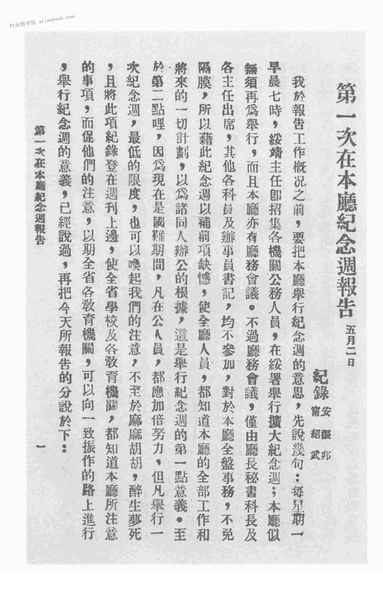 第一次在本廳紀念週報告 五月二日
紀錄
甯紹武
我於報告工作概況之前，要把本廳舉行紀念週的意思，先說幾句：每星期一
早晨七時，綏靖主任卽招集各機關公務人員，在綏署舉行擴大紀念週；本廳似
無須再爲舉行，而且本廳亦有廳務會議。不過廳務會議，僅由廳長秘書科長及
各主任出席，其他各科員及辦事員書記，均不參加，對於本廳全盤事務，不免
隔膜，所以藉此紀念週以補前項缺憾，使全廳人員，都知道本廳的全部工作和
將來的一切計劃，以爲諸同人辦公的根據，這是舉行紀念週的第一點意義。至
於第二點哩，因爲現在是國難期間，凡在公人員，都應加倍努力，但凡舉行一
次紀念週，最低的限度，也可以喚起我們的注意，不至於麻麻胡胡，醉生夢死
，且將此項紀錄登在週刊上邊，使全省學校及各敎育機關，都知道本廳所注意
的事項，而促他們的注意，以期全省各敎育機關，可以向一致振作的路上進行
，舉行紀念週的意義，已經說過，再把今天所報告的分說於下：
第一次在本廳紀念週報告
一